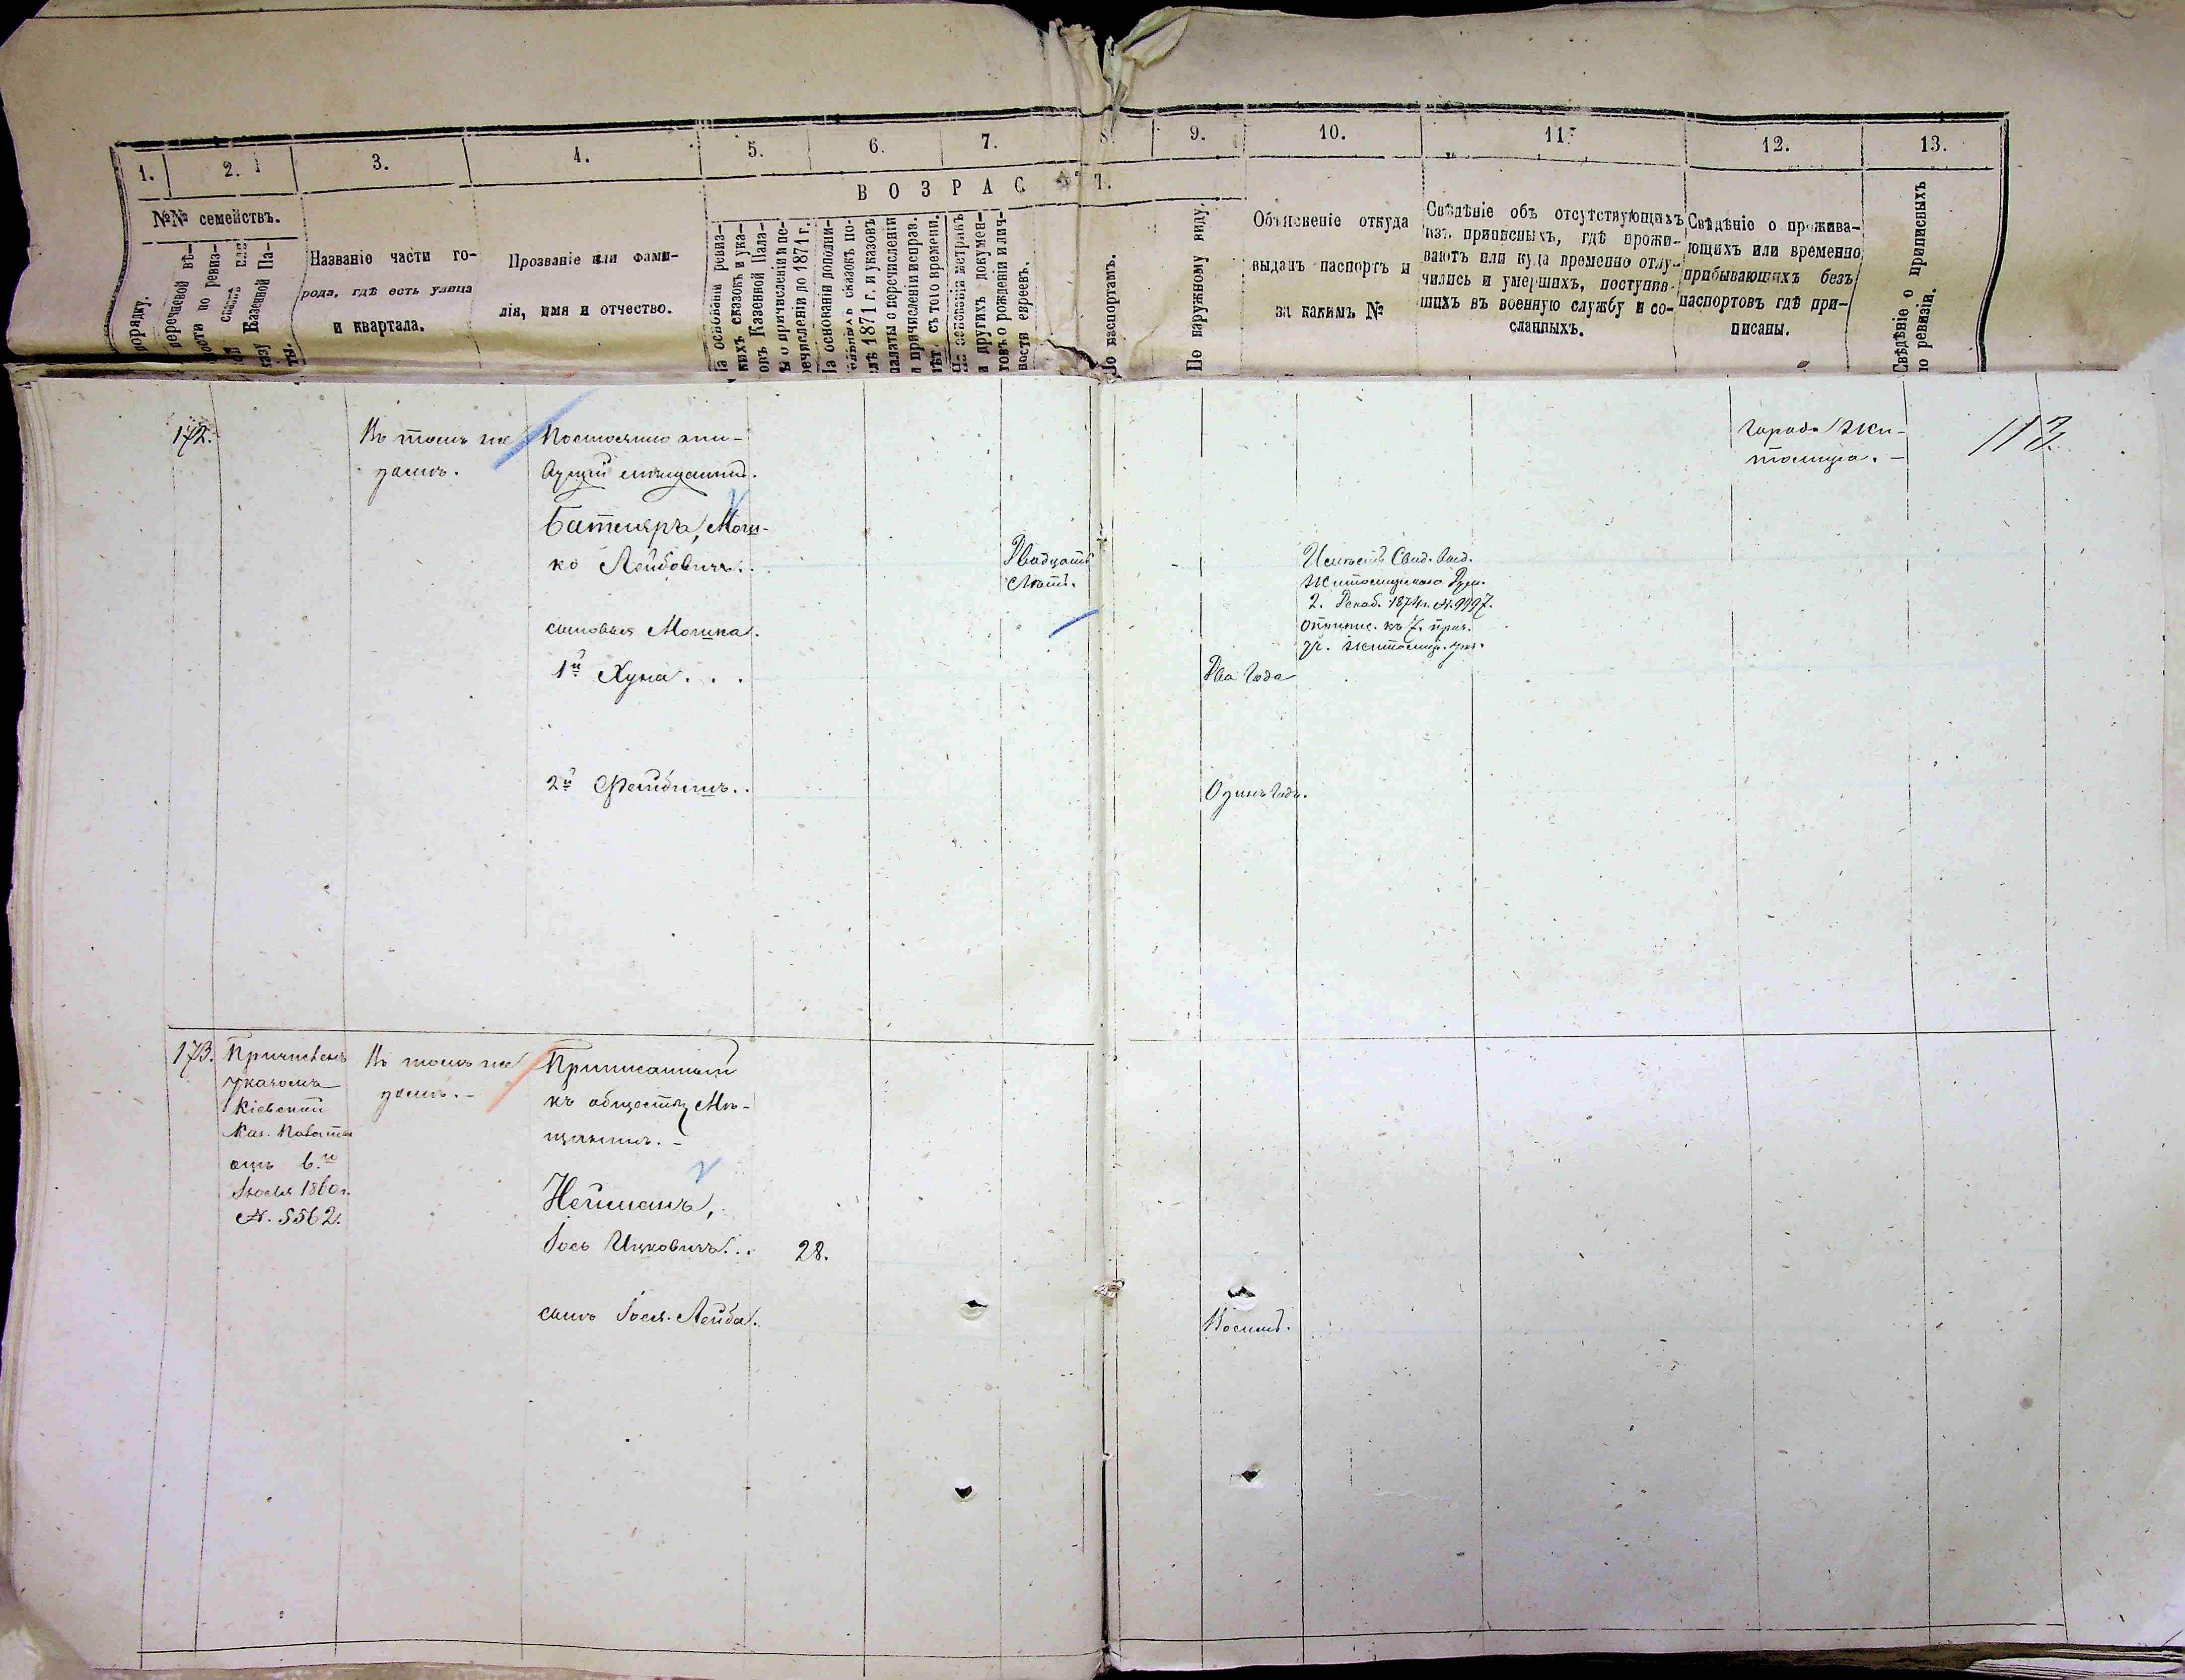 1.
2.
3.
4.
5.
6.
7.
8.
9.
10.
11.
12.
13.
ВОЗРАСТ.
№№ семействъ.
порядку.
перечневой вѣ-
ости по ревиз-
ой сказкѣ или
указу Казенной Па-
ты.
Названіе части го-
рода, гдѣ есть улица
и квартала.
Прозваніе или фами-
лія, имя и отчество.
На основаніи ревиз-
скихъ сказокъ и ука-
зовъ Казенной Пала-
ты о причисленіи и пе-
речисленіи до 1871 г.
На основаніи дополни-
тельныхъ сказокъ по-
слѣ 1871 г. и указовъ
палаты о перечисленіи
и причисленіи исправ.
лѣт. съ того времени.
На основаніи метрикъ
и другихъ докумен-
товъ о рожденіи и лич-
ности евреевъ.
По паспортамъ.
По наружному виду.
Объясненіе откуда
выданъ паспортъ и
за какимъ №
Свѣдѣніе объ отсутствующихъ
изъ приписныхъ, гдѣ прожи-
ваютъ или куда временно отлу-
чились и умершихъ, поступив-
шихъ въ военную службу и со-
сланныхъ.
Свѣдѣніе о прожива-
ющихъ или временно
прибывающихъ безъ
паспортовъ гдѣ при-
писаны.
Свѣдѣніе о приписныхъ
по ревизіи.
172.
Въ томъ же
домѣ.
Постоянно жи-
вущій мѣщанинъ.
Батляръ, Мош-
ко Лейбовичъ..
Двадцать
Лѣтъ.
Имѣетъ Свид. выд.
Житомирскаго
2. Декаб. 1874 г. №. 9997.
о припис. къ 7. приз.
уч. Житомир. уѣз.
города Жи-
томира. -
113.
сыновья Мошка.
1й Хуна . . .
Два Года
2й Фейбишъ..
Одинъ Годъ.
173.
Причисленъ
указомъ
Кіевской
Каз. Палаты
отъ 6.го
1860 г.
№. 5562.
Въ томъ же
домѣ. -
Приписанный
къ обществу Мѣ-
щанинъ. -
Нейманъ,
Іось Ицковичъ...
28.
сынъ Іося. Лейба.
Восемь.